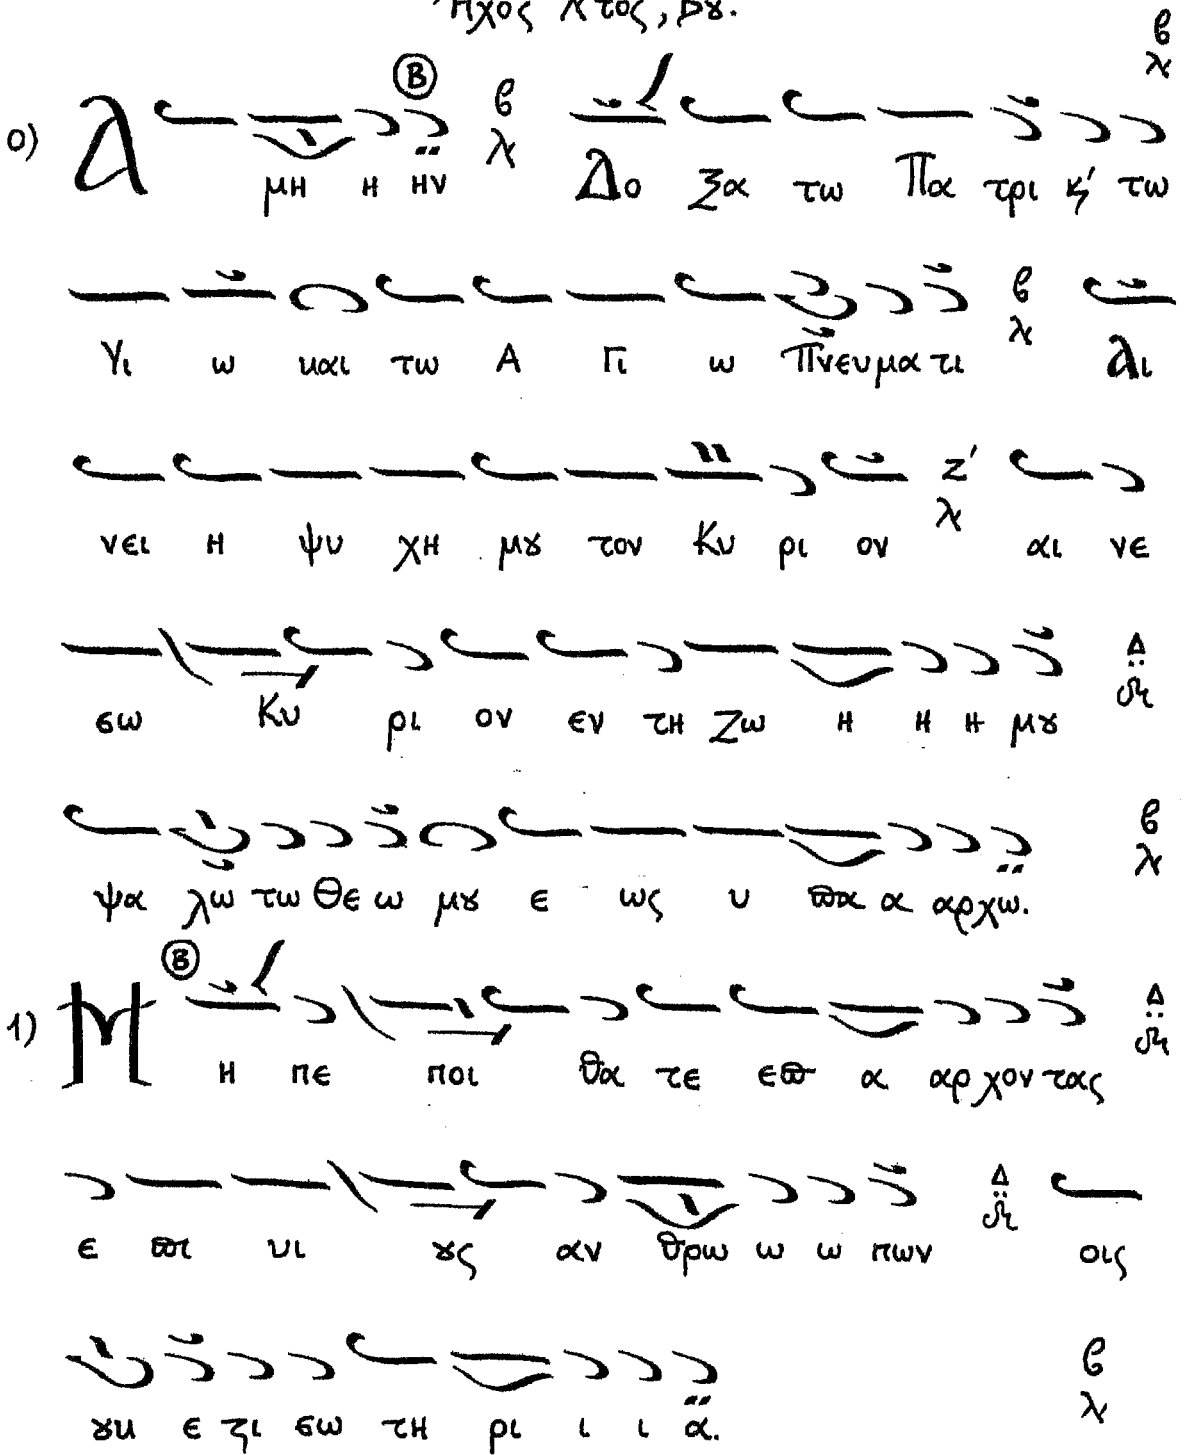 Ἦχος λ τος, Βȣ.
0) Α μη η ην Δο ξα τω Πα τρι κ' τω
Υι ω και τω Α Γι ω Πνευ μα τι Αι
νει η ψυ χη μȣ τον Κυ ρι ον αι νε
σω Κυ ρι ον εν τη Ζω η η η μȣ
ψα λω τω Θε ω μȣ ε ως υ πα α αρχω.
1) Μ η πε ποι θα τε επ α αρ χον τας
ε πι υι ȣς αν θρω ω ω πων οις
ȣκ ε ςι σω τη ρι ι ι α.